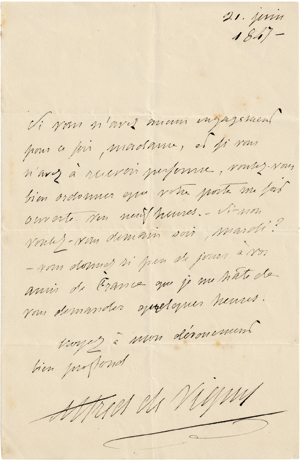 21. juin
1847 —
Si vous n'avez aucun engagement
pour ce soir, madame, et si vous
n'avez à recevoir personne, voulez-vous
bien ordonner que votre porte me soit
ouverte vers neuf heures. — Si non
voulez-vous demain soir, mardi ?
— vous donnez si peu de jours à vos
amis de France que je me hâte de
vous demander quelques heures.
croyez à mon dévouement
bien profond
Alfred de Vigny